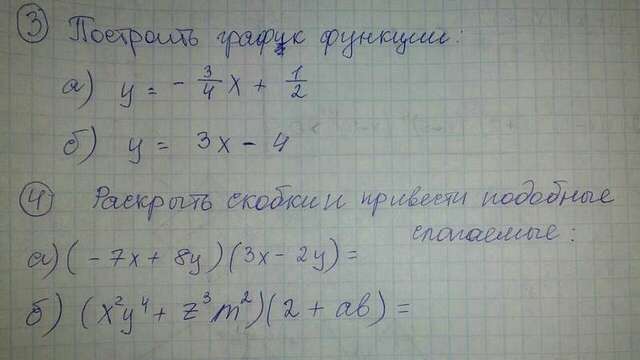 ③ Построить график функции:
а) y = - 3/4 x + 1/2
б) y = 3x - 4
④ Раскрыть скобки и привести подобные
слагаемые:
а) (-7x + 8y)(3x - 2y) =
б) (x²y⁴ + z³m²)(2 + ab) =